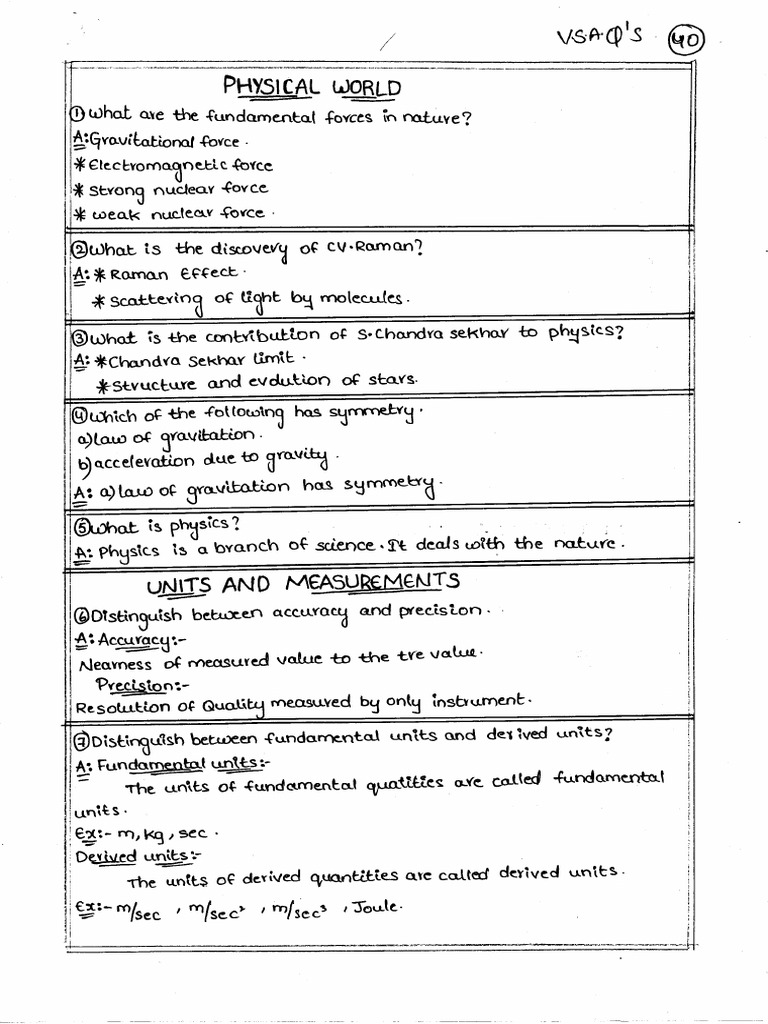 V.S.A.Q'S 40
PHYSICAL WORLD
① What are the fundamental forces in nature?
A: Gravitational force.
* Electromagnetic force
* Strong nuclear force
* weak nuclear force.
② What is the discovery of CV.Raman?
A: * Raman Effect.
* Scattering of light by molecules.
③ What is the contribution of S.Chandra sekhar to physics?
A: * Chandra Sekhar limit.
* Structure and evolution of stars.
④ Which of the following has symmetry.
a) law of gravitation.
b) acceleration due to gravity.
A: a) law of gravitation has symmetry.
⑤ What is physics?
A: Physics is a branch of science. It deals with the nature.
UNITS AND MEASUREMENTS
⑥ Distinguish between accuracy and precision.
A: Accuracy:-
Nearness of measured value to the tre value.
Precision:-
Resolution of Quality measured by only instrument.
⑦ Distinguish between fundamental units and derived units?
A: Fundamental units:-
The units of fundamental quatities are called fundamental
units.
Ex:- m, kg, sec.
Derived units:-
The units of derived quantities are called derived units.
Ex:- m/sec, m/sec², m/sec³, Joule.